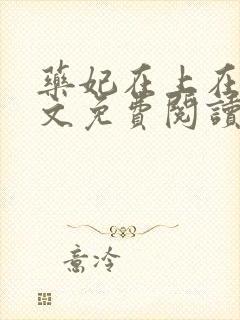 药妃在上在
文免費閱讀
意冷